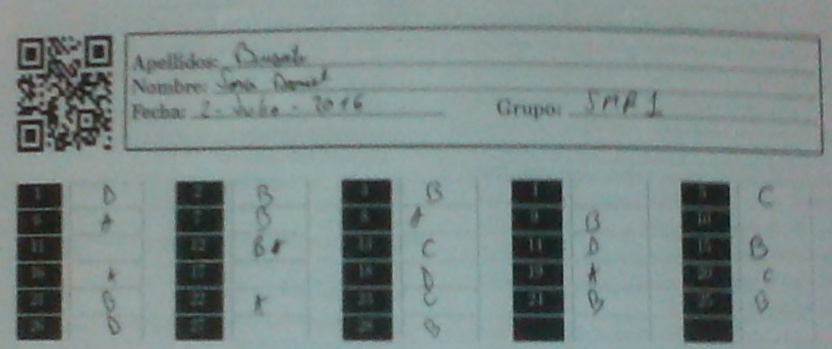 Apellidos:
Nombre:
Fecha: 2 - Julio - 2016 Grupo: SMR 1
1 D 2 B 3 B 4 5 C
6 A 7 B 8 A 9 B 10
11 12 B 13 C 14 D 15 B
16 A 17 18 D 19 A 20 C
21 B 22 A 23 C 24 B 25 B
26 D 27 28 B